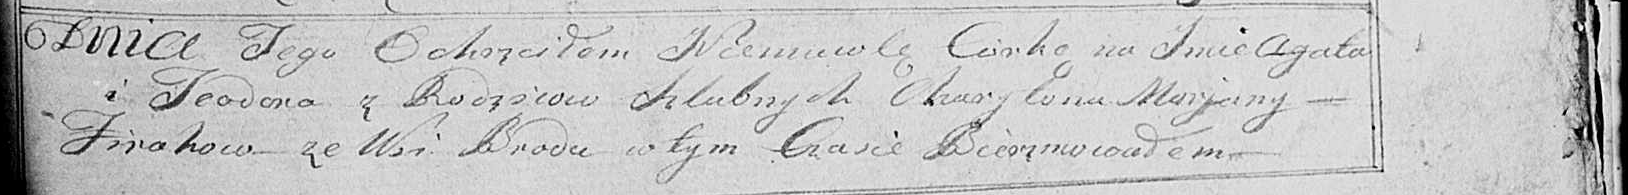 Dnia Tego Ochrzciłem Niemowlę Corkę na Imie Agata
i Teodora z Rodzicow szlubnych Charytona Maryany —
Zirakow ze Wsi Brodu w tym Czasie Bierzmowałem —